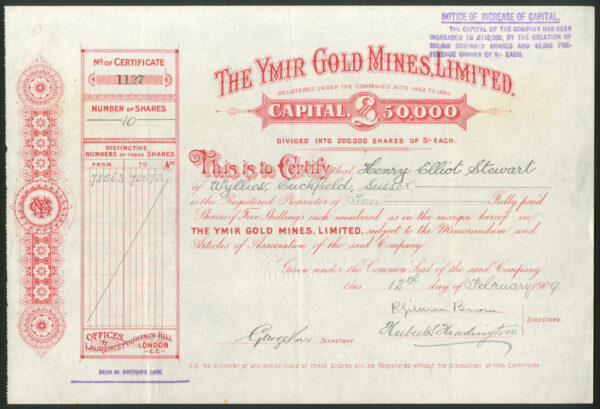 NOTICE OF INCREASE OF CAPITAL.
THE CAPITAL OF THE COMPANY HAS BEEN
INCREASED TO £110,000, BY THE CREATION OF
200,000 ORDINARY SHARES AND 40,000 PRE-
FERENCE SHARES OF 5/- EACH.
THE YMIR GOLD MINES, LIMITED.
REGISTERED UNDER THE COMPANIES ACTS 1862 TO 1900
CAPITAL, £50,000
DIVIDED INTO 200,000 SHARES OF 5/- EACH.
No OF CERTIFICATE
1127
NUMBER OF SHARES
10
DISTINCTIVE
NUMBERS OF THESE SHARES
FROM TO No
72563 72572
This is to Certify that Henry Elliot Stewart
of Wyllies, Cuckfield, Sussex
is the Registered Proprietor of Ten Fully paid
Shares of Five Shillings each numbered as in the margin hereof in
THE YMIR GOLD MINES, LIMITED, subject to the Memorandum and
Articles of Association of the said Company.
Given under the Common Seal of the said Company
this 12th day of February 1909
DIRECTORS.
SECRETARY
OFFICES
6
LAURENCE POUNTNEY HILL
LONDON
E.C.
N.B. No transfer of any one or more of these Shares will be Registered without the production of this Certificate